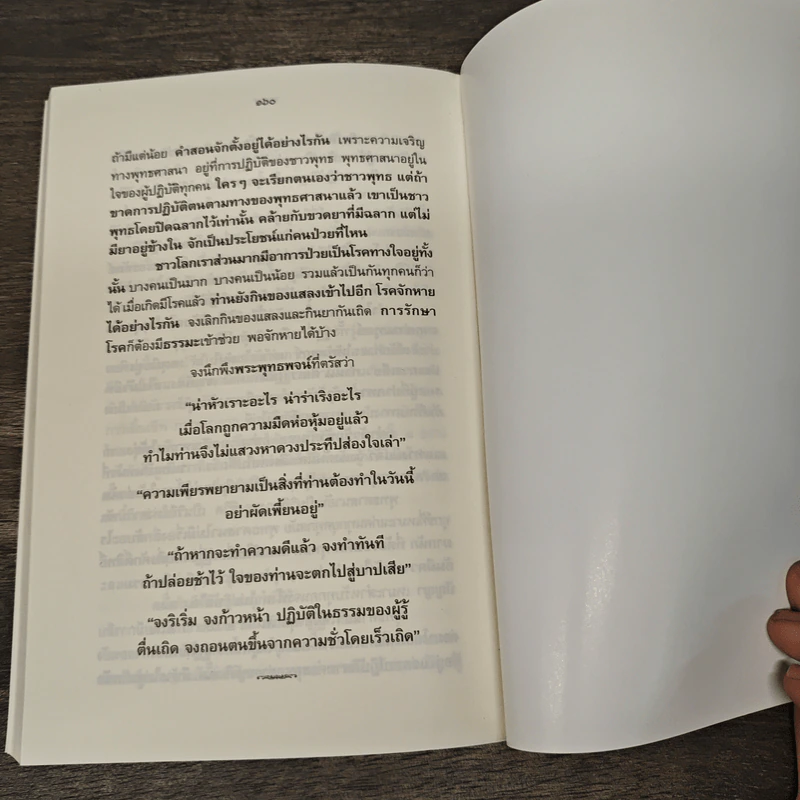 ๑๖๐
ถ้ามีแต่น้อย คำสอนจักตั้งอยู่ได้อย่างไรกัน เพราะความเจริญ
ทางพุทธศาสนา อยู่ที่การปฏิบัติของชาวพุทธ พุทธศาสนาอยู่ใน
ใจของผู้ปฏิบัติทุกคน ใครๆ จะเรียกตนเองว่าชาวพุทธ แต่ถ้า
ขาดการปฏิบัติตนตามทางของพุทธศาสนาแล้ว เขาเป็นชาว
พุทธโดยปิดฉลากไว้เท่านั้น คล้ายกับขวดยาที่มีฉลาก แต่ไม่
มียาอยู่ข้างใน จักเป็นประโยชน์แก่คนป่วยที่ไหน
ชาวโลกเราส่วนมากมีอาการป่วยเป็นโรคทางใจอยู่ทั้ง
นั้น บางคนเป็นมาก บางคนเป็นน้อย รวมแล้วเป็นกันทุกคนก็ว่า
ได้ เมื่อเกิดมีโรคแล้ว ท่านยังกินของแสลงเข้าไปอีก โรคจักหาย
ได้อย่างไรกัน จงเลิกกินของแสลงและกินยากันเถิด การรักษา
โรคก็ต้องมีธรรมะเข้าช่วย พอจักหายได้บ้าง
จงนึกพึงพระพุทธพจน์ที่ตรัสว่า
“น่าหัวเราะอะไร น่าร่าเริงอะไร
เมื่อโลกถูกความมืดห่อหุ้มอยู่แล้ว
ทำไมท่านจึงไม่แสวงหาดวงประทีปส่องใจเล่า”
“ความเพียรพยายามเป็นสิ่งที่ท่านต้องทำในวันนี้
อย่าผัดเพี้ยนอยู่”
“ถ้าหากจะทำความดีแล้ว จงทำทันที
ถ้าปล่อยช้าไว้ ใจของท่านจะตกไปสู่บาปเสีย”
“จงริเริ่ม จงก้าวหน้า ปฏิบัติในธรรมของผู้รู้
ตื่นเถิด จงถอนตนขึ้นจากความชั่วโดยเร็วเถิด”